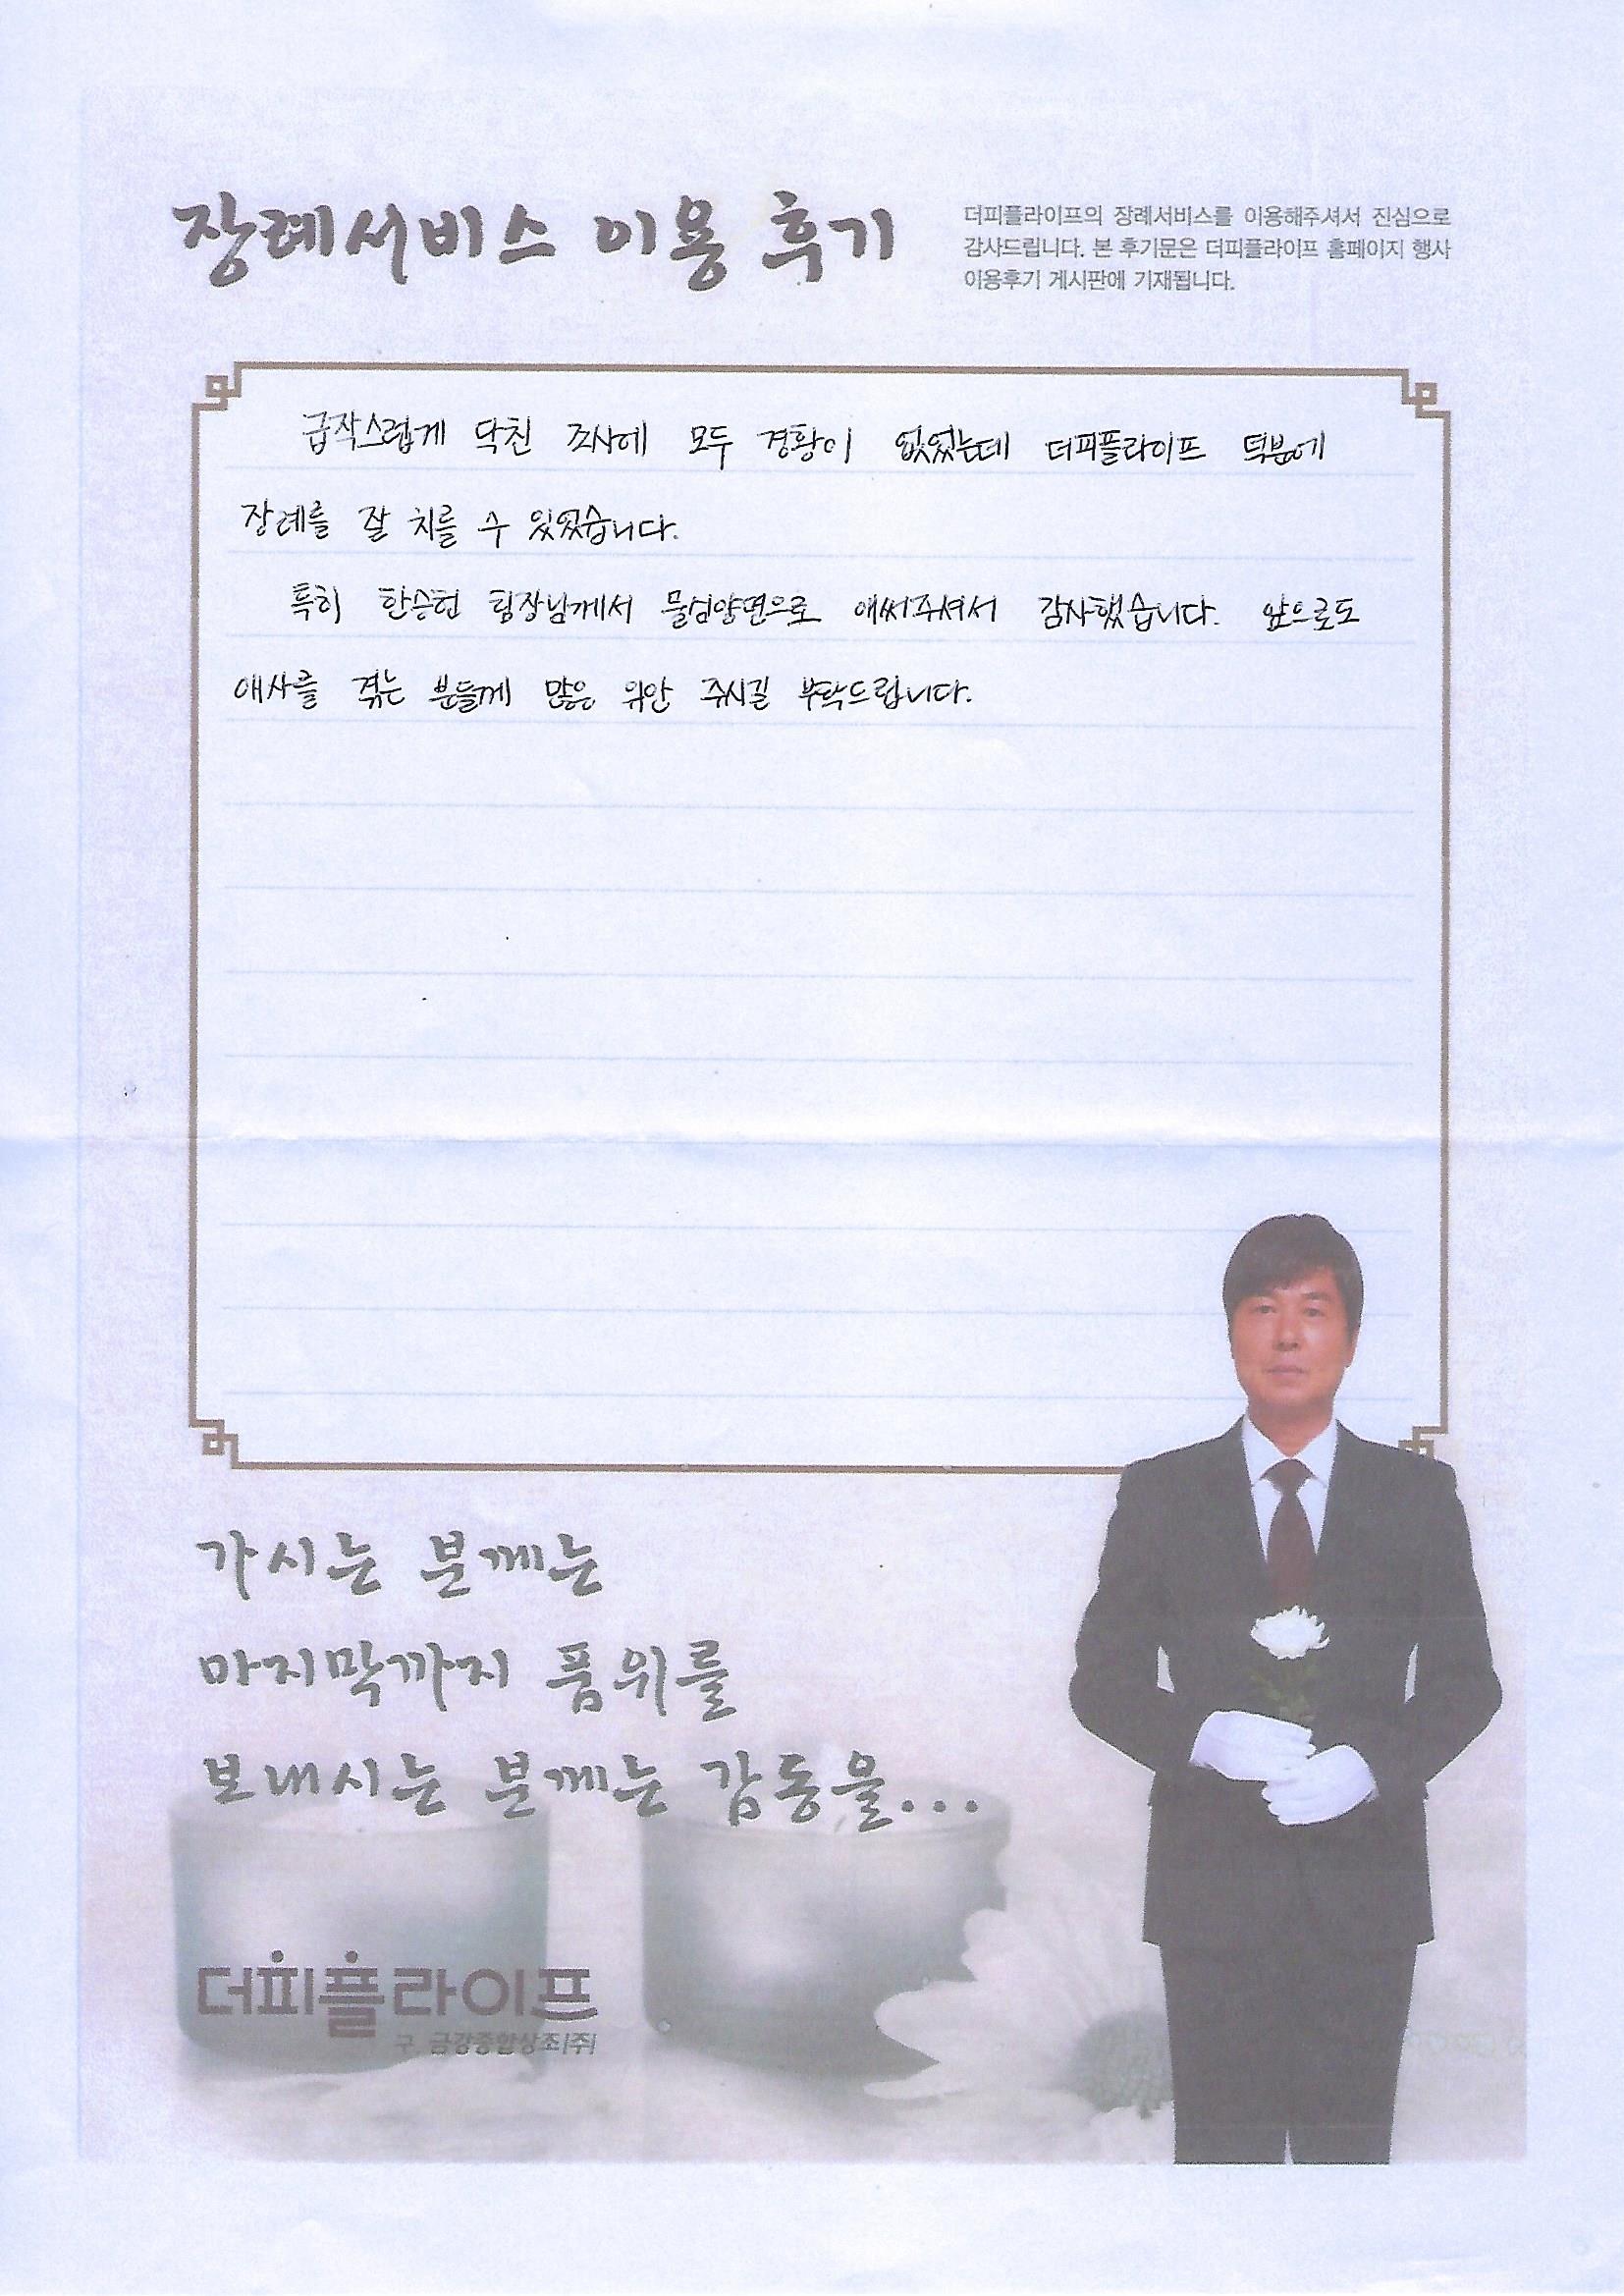 장례서비스 이용 후기
더피플라이프의 장례서비스를 이용해주셔서 진심으로
감사드립니다. 본 후기문은 더피플라이프 홈페이지 행사
이용후기 게시판에 기재됩니다.
급작스럽게 닥친 조사에 모두 경황이 없었는데 더피플라이프 덕분에
장례를 잘 치를 수 있었습니다.
특히 한승헌 팀장님께서 물심양면으로 애써주셔서 감사했습니다. 앞으로도
애사를 겪는 분들께 많은 위안 주시길 부탁드립니다.
가시는 분께는
마지막까지 품위를
보내시는 분께는 감동을...
더피플라이프
구. 금강종합상조(주)